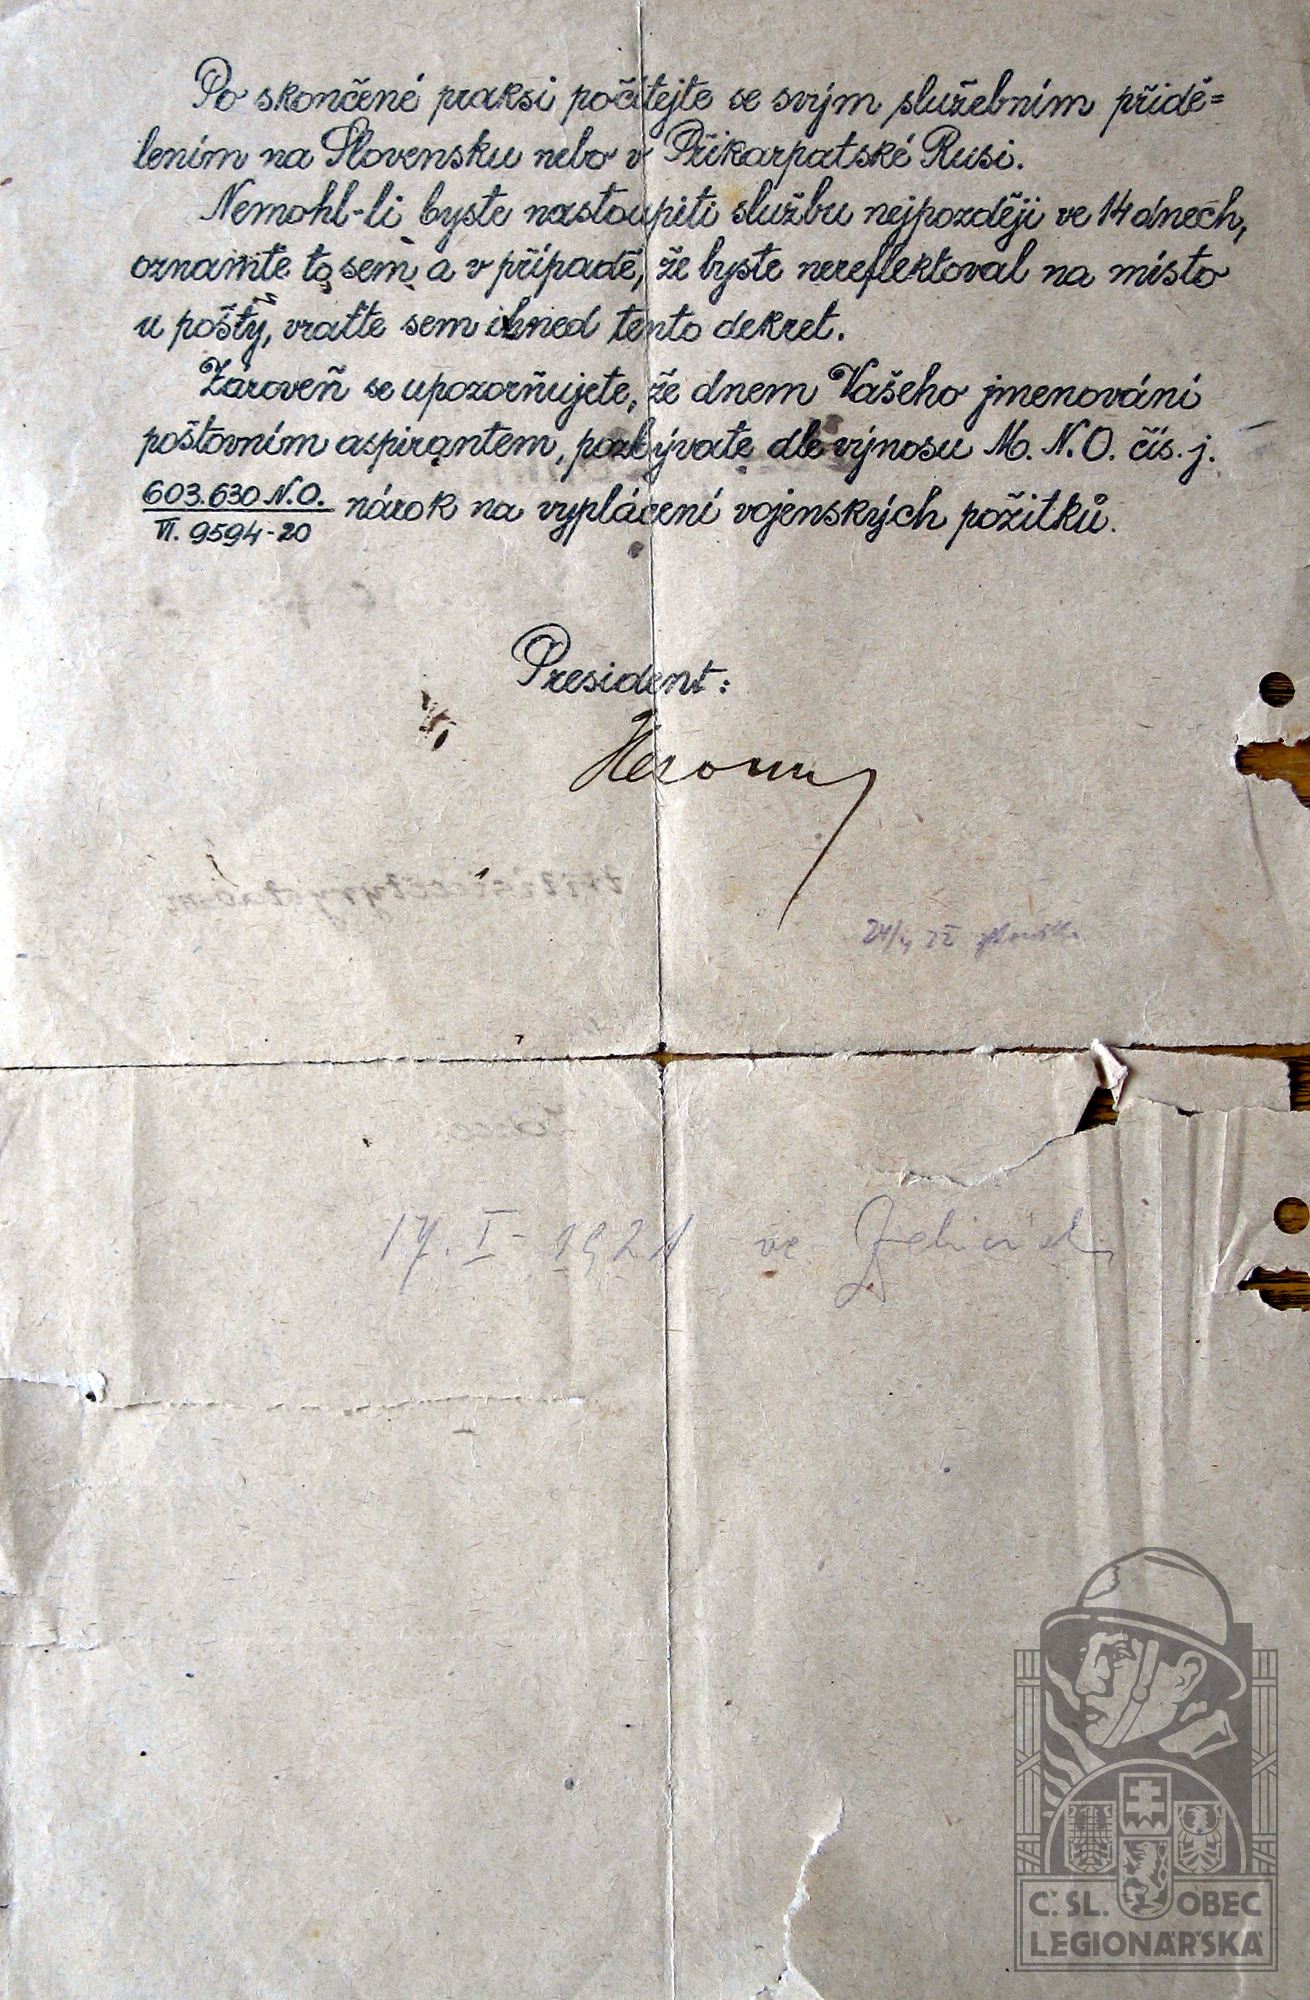 Po skončené praksi počítejte se svým služebním přidě=
lením na Slovensku nebo v Přikarpatské Rusi.
Nemohl-li byste nastoupiti službu nejpozději ve 14 dnech,
oznamte to sem a v případě, že byste nereflektoval na místo
u pošty, vraťte sem ihned tento dekret.
Zároveň se upozorňujete, že dnem Vašeho jmenování
poštovním aspirantem, pozbýváte dle výnosu M. N. O. čís. j.
603.630 N.O.
VI. 9594-20
nárok na vyplácení vojenských požitků.
President:
24/4 22
17. I - 1921 ve
Č. SL. OBEC
LEGIONÁŘSKÁ